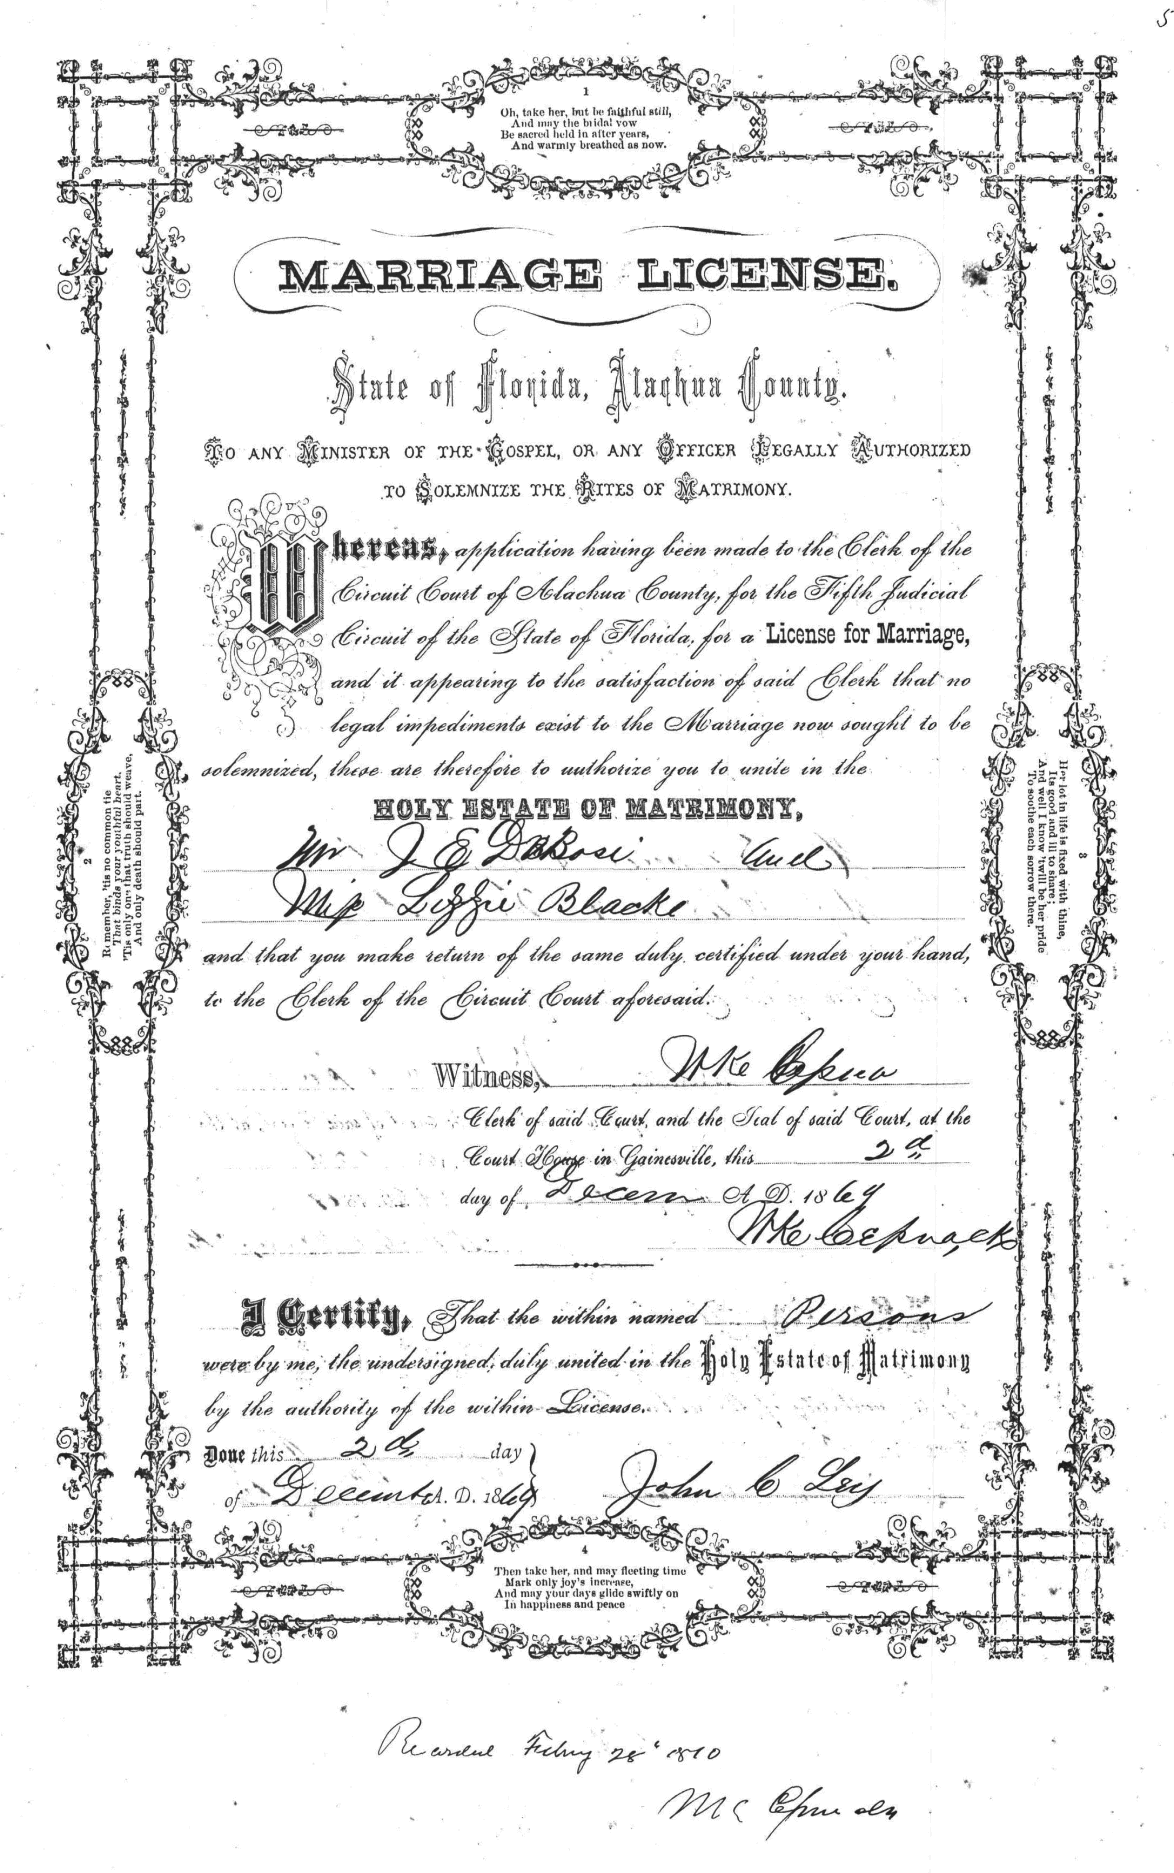 5
1
Oh, take her, but be faithful still,
And may the bridal vow
Be sacred held in after years,
And warmly breathed as now.
MARRIAGE LICENSE.
State of Florida, Alachua County.
TO ANY MINISTER OF THE GOSPEL, OR ANY OFFICER LEGALLY AUTHORIZED
TO SOLEMNIZE THE RITES OF MATRIMONY.
Whereas, application having been made to the Clerk of the
Circuit Court of Alachua County, for the Fifth Judicial
Circuit of the State of Florida, for a License for Marriage,
and it appearing to the satisfaction of said Clerk that no
legal impediments exist to the Marriage now sought to be
solemnized, these are therefore to authorize you to unite in the
HOLY ESTATE OF MATRIMONY,
Mr J E DeBose and
Miss Lizzie Blacke
and that you make return of the same duly certified under your hand,
to the Clerk of the Circuit Court aforesaid.
Witness,
Clerk of said Court, and the Seal of said Court, at the
Court House in Gainesville, this 2d
day of Decem A. D. 1869
I Certify, That the within named Persons
were by me, the undersigned, duly united in the Holy Estate of Matrimony
by the authority of the within License.
Done this 2d day
of December A. D. 1869 John C
2
Remember, 'tis no common tie
That binds your youthful heart,
'Tis only one that truth should weave,
And only death should part.
3
Her lot in life is fixed with thine,
Its good and ill to share;
And well I know 'twill be her pride
To soothe each sorrow there.
4
Then take her, and may fleeting time
Mark only joy's increase,
And may your days glide swiftly on
In happiness and peace
Recorded 28" 1870